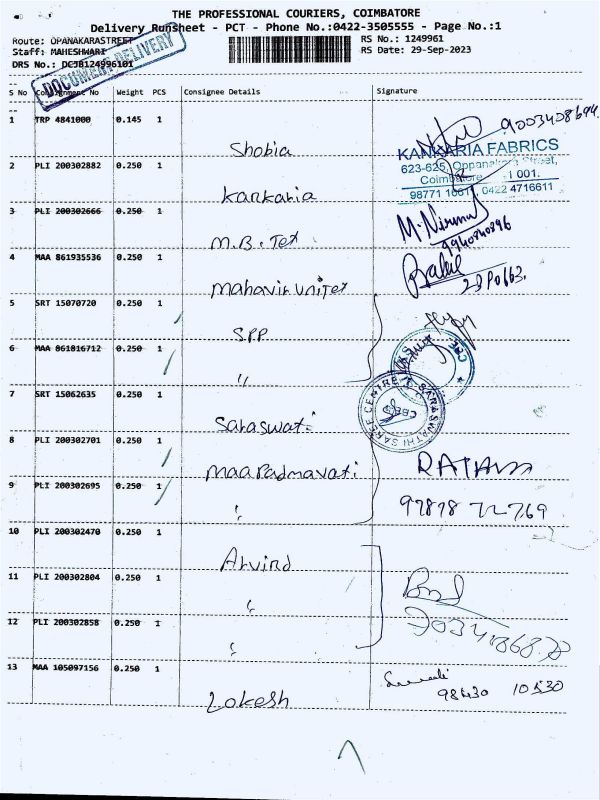 THE PROFESSIONAL COURIERS, COIMBATORE
Delivery Runsheet - PCT - Phone No.:0422-3505555 - Page No.:1
Route: OPANAKARASTREET RS No.: 1249961
Staff: MAHESHWARI RS Date: 29-Sep-2023
DRS No.: DCJB124996101
DOCUMENT DELIVERY
S No Consignment No Weight PCS Consignee Details Signature
1 TRP 4841000 0.145 1 Shobia 9003408694
KANKARIA FABRICS
623-625, Oppanakara Street,
Coimbatore 1 001.
0422 4716611
2 PLI 200302882 0.250 1 Kankaria
3 PLI 200302666 0.250 1 M.B. Tex M. Nirmal
4 MAA 861935536 0.250 1 Mahavir Unitex
5 SRT 15070720 0.250 1 SPP
6 MAA 861816712 0.250 1 "
7 SRT 15062635 0.250 1 Saraswati
SARASWATHI SAREE CENTRE
8 PLI 200302701 0.250 1 Maa Padmavati
9 PLI 200302695 0.250 1 "
97878 72769
10 PLI 200302470 0.250 1 Arvind
11 PLI 200302804 0.250 1 "
12 PLI 200302858 0.250 1 "
13 MAA 105097156 0.250 1 Lokesh 98430 10530